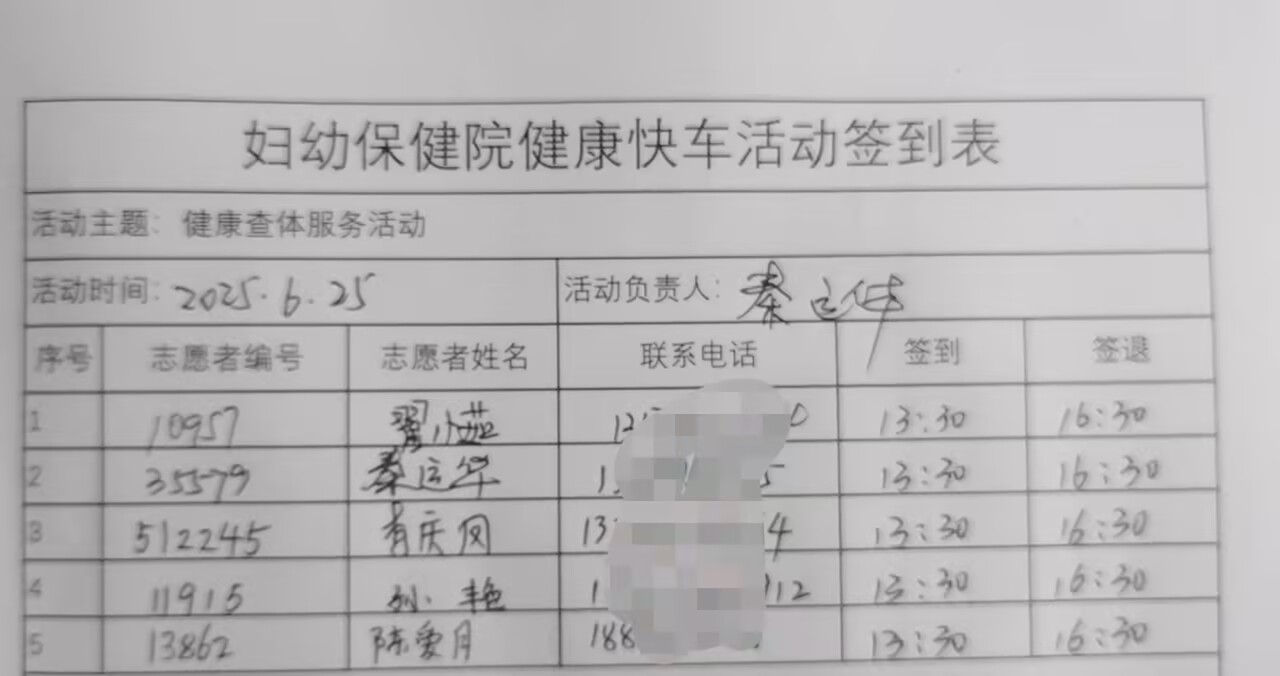 妇幼保健院健康快车活动签到表
活动主题: 健康查体服务活动
活动时间: 2025.6.25 活动负责人: 秦运华
序号 志愿者编号 志愿者姓名 联系电话 签到 签退
1 10957 翟小茹 13:30 16:30
2 35579 秦运华 13:30 16:30
3 512245 肖庆凤 13:30 16:30
4 11915 孙艳 13:30 16:30
5 13862 陈爱月 188 13:30 16:30